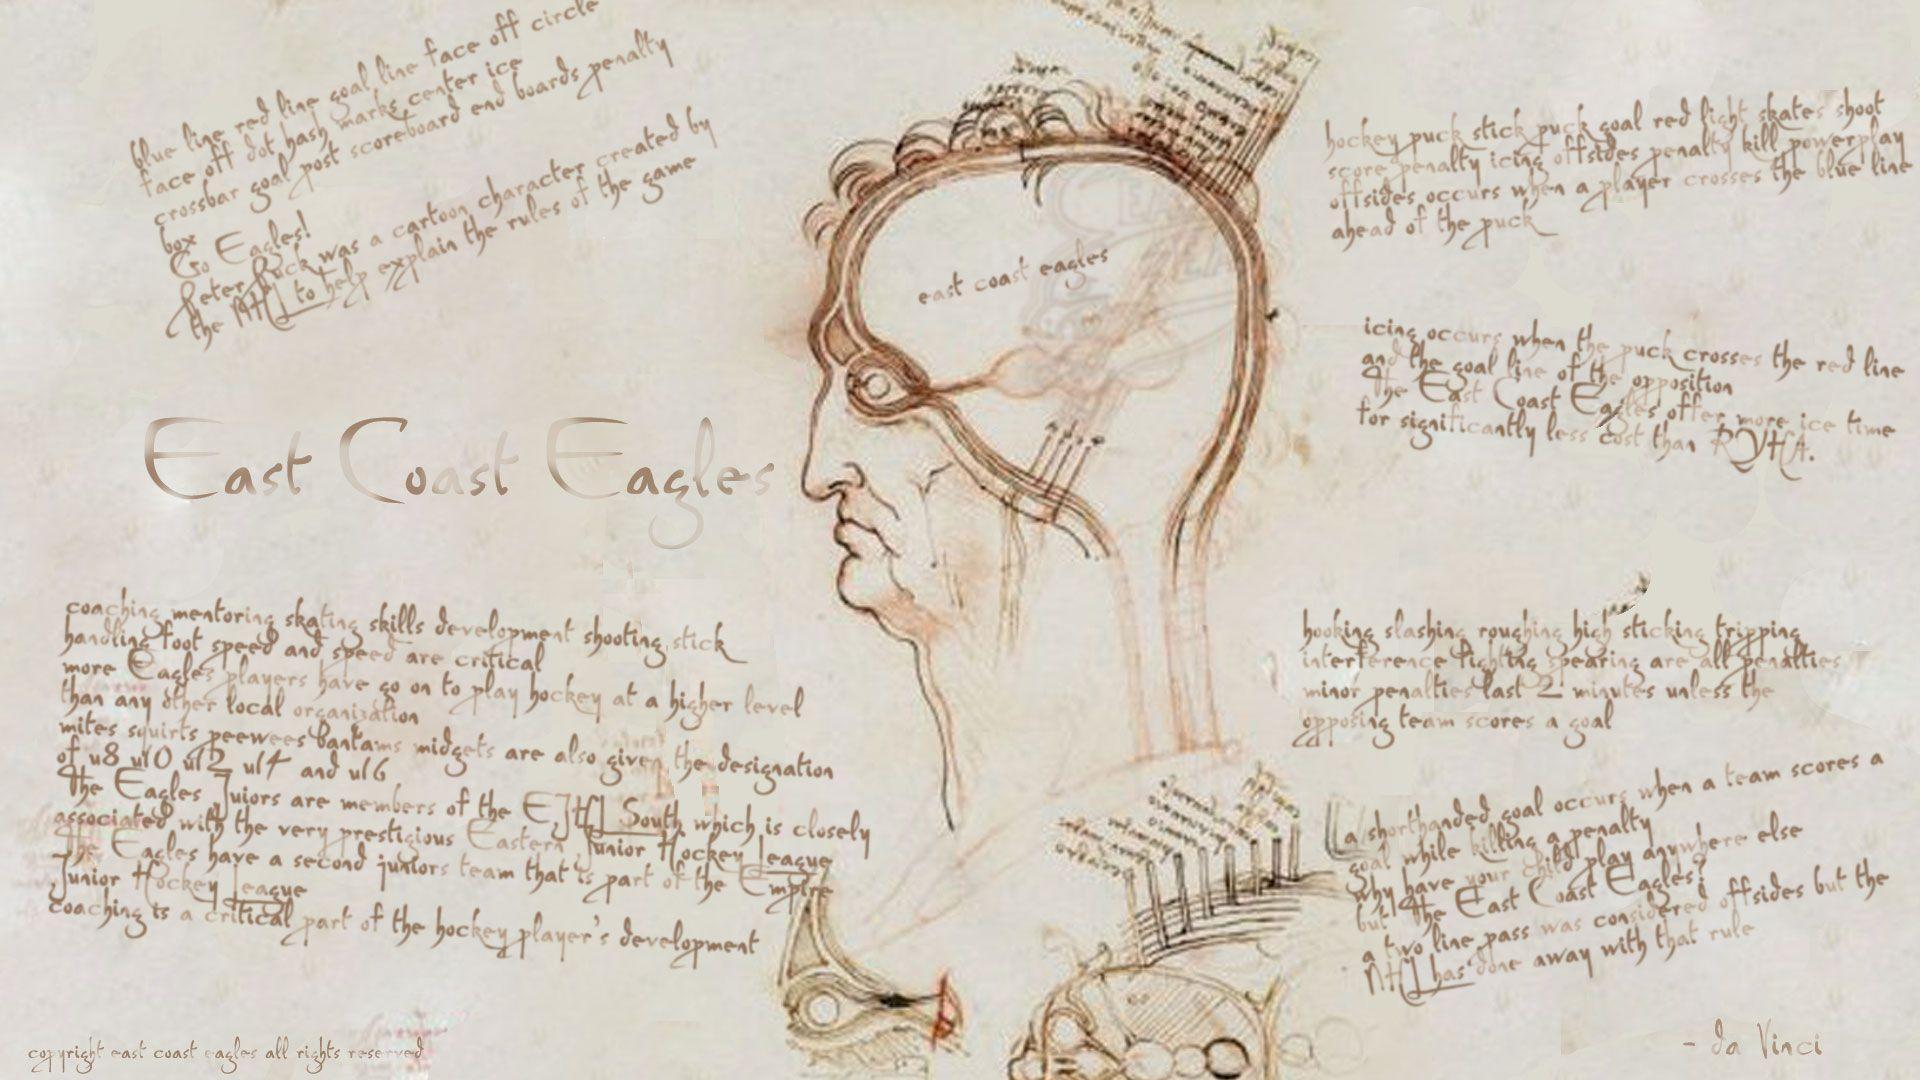 blue line red line goal line face off circle
face off dot hash marks center ice
crossbar goal post scoreboard end boards penalty
box
Go Eagles!
Peter Puck was a cartoon character created by
the NHL to help explain the rules of the game
East Coast Eagles
coaching mentoring skating skills development shooting stick
handling foot speed and speed are critical
more Eagles players have go on to play hockey at a higher level
than any other local organization
mites squirts peewees bantams midgets are also given the designation
of u8 u10 u12 u14 and u16
The Eagles Juiors are members of the EJHL South which is closely
associated with the very prestigious Eastern Junior Hockey League
The Eagles have a second juniors team that is part of the Empire
Junior Hockey League
coaching is a critical part of the hockey player's development
copyright east coast eagles all rights reserved
east coast eagles
hockey puck stick puck goal red light skates shoot
score penalty icing offsides penalty kill powerplay
offsides occurs when a player crosses the blue line
ahead of the puck
icing occurs when the puck crosses the red line
and the goal line of the opposition
The East Coast Eagles offer more ice time
for significantly less cost than RYHA.
hooking slashing roughing high sticking tripping
interference fighting spearing are all penalties
minor penalties last 2 minutes unless the
opposing team scores a goal
a shorthanded goal occurs when a team scores a
goal while killing a penalty
why have your child play anywhere else
but The East Coast Eagles?
a two line pass was considered offsides but the
NHL has done away with that rule
- da Vinci